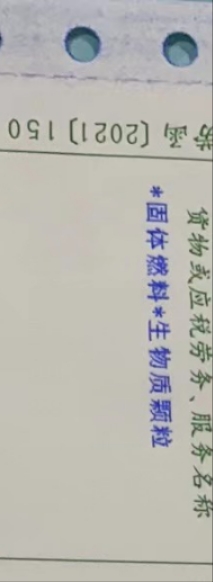 〔2021〕150
货物或应税劳务、服务名称
*固体燃料*生物质颗粒